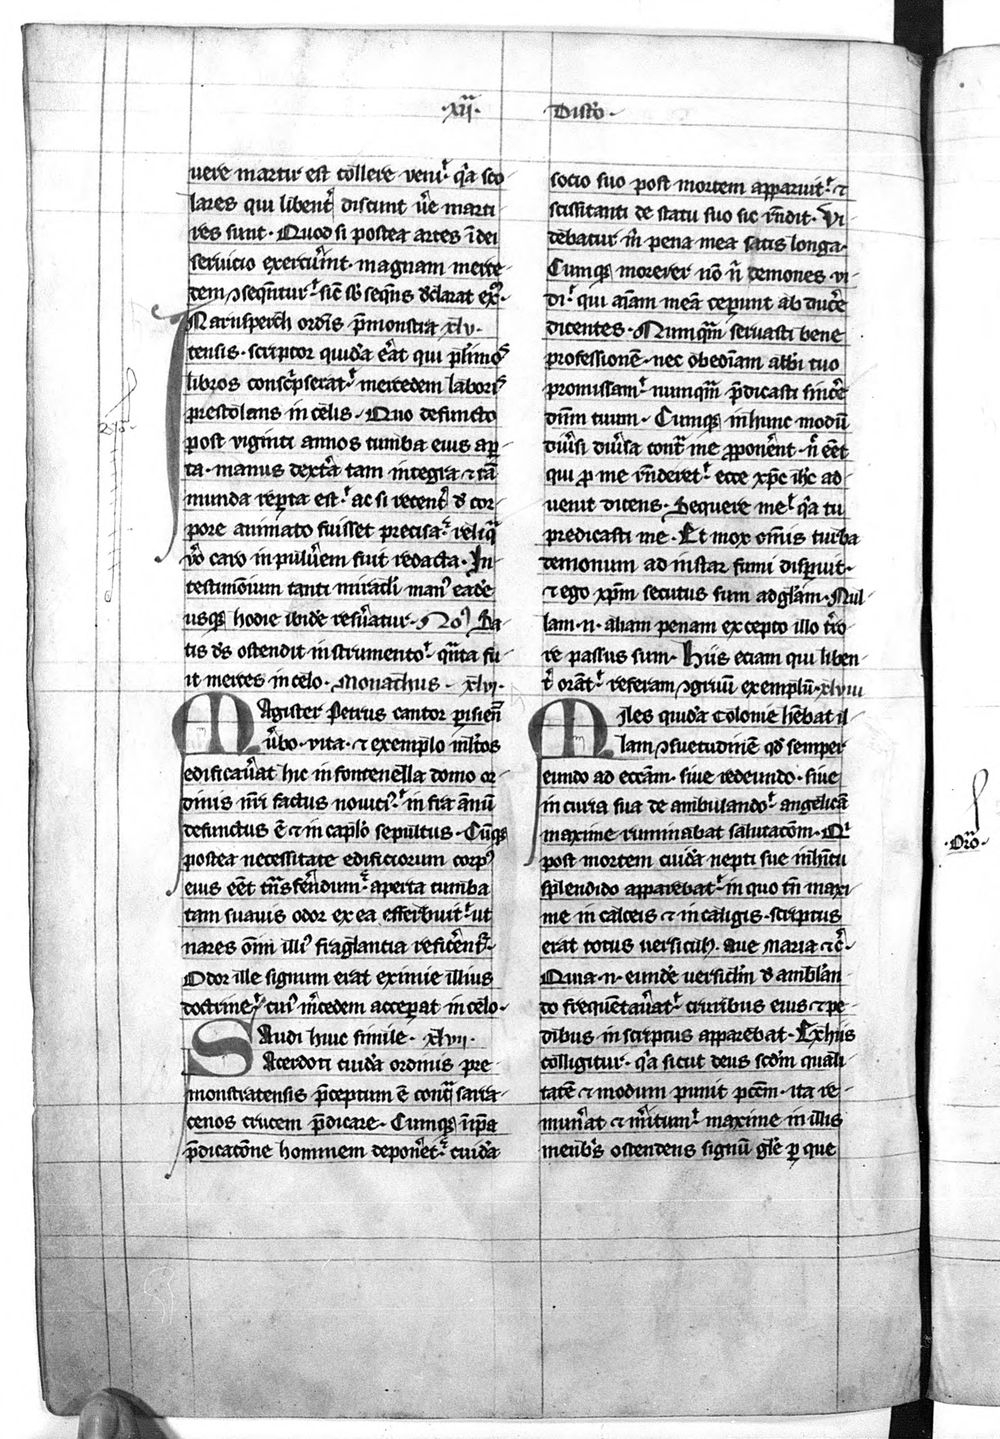 ·xii· Distō·
vere martir est tollere veniꝰ qͥa sco
lares qui libent᷑ discunt v̾e marti
res sunt· Quod si postea artes ī dei
servicio exercuͥnt· magnam merce
dem ↄseqn̄tur· sic̄ sb̾seqn̄s dc̄larat exᵐ·
IN arnsperch ordīs p̄monstra xlv·
tensis· scriptor quidā er̄at qui pl̾imoˢ
libros conscͥpserat· mercedem laborꝭ
prestolans in celis· Quo defuncto
post viginti annos tumba eius ap̱
ta· manus dextͣa tam integra ⁊ tā
munda rep̱ta est· ac si recent̾ d̾ cor
pore animato fuisset precisa· reliqͣ
v̾o caro in pulv̾em fuit redacta· In
testimōium tanti miracl̾i manꝰ eadē
usqꝫ hodie ibidē resv̾atur· Noꝰ Sa
tis dˢ ostendit in strumento· qn̄ta fu
it merces in celo· Monachus· xlvi·
Magister Petrus cantor p̱isieñ
v̾bo· vita· ⁊ exemplo ml̾tos
edificav̾at hic in fontenella domo or
dinis nr̄i factus noviciꝰ· in fra annū
defunctus ē ⁊ in capl̾o sepultus· Cūqꝫ
postea necessitate edificiorum corpꝰ
eius eēt tn̄sferēndum· aperta tumba
tam suavis odor ex ea efferbuit· ut
nares om̄i illiꝰ fraglantia reficerēt᷑·
Odor ille signum erat eximie illius
doctrine· cuiꝰ m̾cedem acceperat in celo·
Audi huic simile· xlvii·
Sacerdoti cuidā ordinis pre
monstratensis p̄ceptum ē contͣ sarra
cenos crucem p̄dicare· Cumqꝫ in ip̄a
p̄dicatōne hominem deponer̄et· cuidā
socio suo post mortem apparuit· ⁊
scissitanti de statu suo sic rn̄dit· Vi
debatur m̄ pena mea satis longa·
Cumqꝫ morerer nō n̄ demones vi
di· qui aīam meā ceperunt ab ducer̄e
dicentes· Numqͣm servasti bene
professionē· nec obediam abb̄i tuo
promissam· numqͣm p̄dicasti sincer̄e
dn̄m tuum· Cumqꝫ in hunc modū
div̾si div̾sa contͣ me ꝓponerēt· n̄ eēt
qui ꝓ me rn̄deret· ecce xp̄c ih̄c ad
venit dicens· Sequere me· qͥa tu
predicasti me· Et mox om̄is turba
demonum ad instar fumi disparuit·
⁊ ego xp̄m secutus sum ad gl̄am· Nul
lam ·n· aliam penam excepto illo tr̄ro
re passus sum· Hiis eciam qui liben
t᷑ orāt· referam ↄgruū exemplū· xlviii
Miles quidā Colonie hēbat il
lam ↄsuetudinē qd̾ semper
eundo ad eccām· sive redeundo· sive
in curia sua de ambulando· angelicā
maxime ruminabat salutacōm· Qͥ
post mortem cuidā nepti sue in hītu
splendido apparebat· in quo tn̄ maxi
me in calceis ⁊ in caligis· scriptus
erat totus versiculꝰ· Ave Maria ⁊ c̄·
Quia ·n· eundē versicl̾m d̾ ambulan
do frequētav̾at· cruribus eius ⁊ pe
dibus inscriptus apparebat· Ex hiis
colligitur· qͥa sicut deus scd̄m quali
tatē ⁊ modum punit pctm̄· ita re
mun̾at ⁊ m̾itum· maxime in illis
membr̾s ostendens signū gl̾e p̱ que
·Orō·